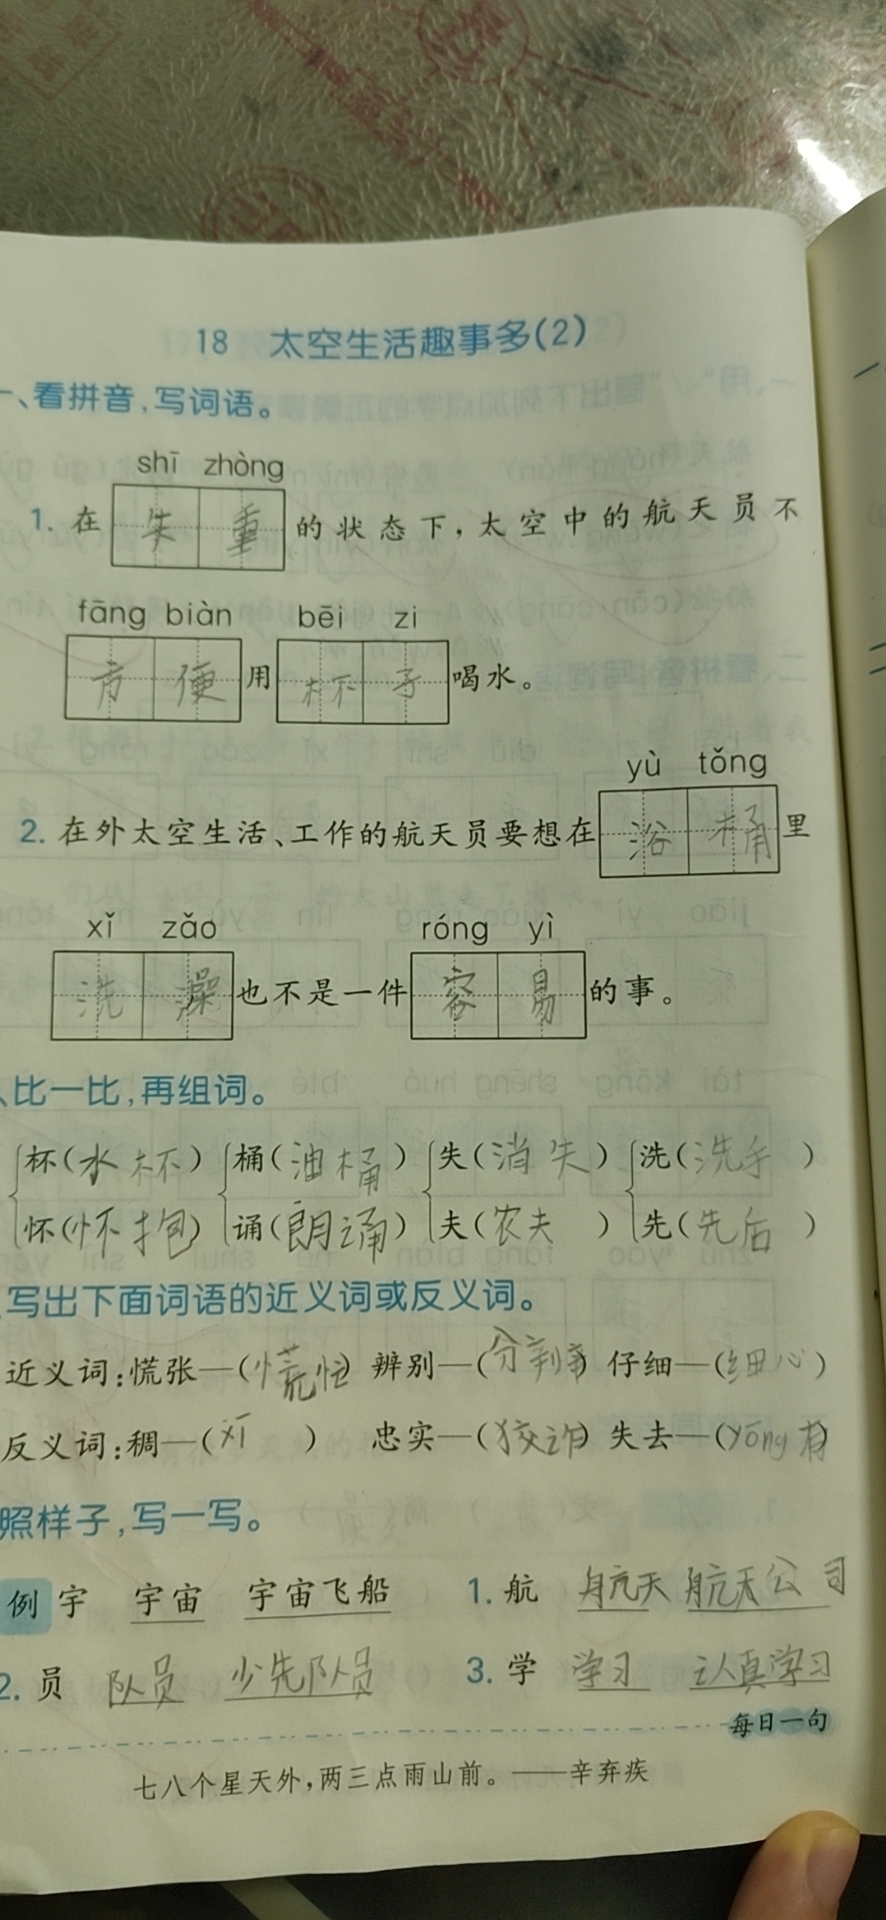 18 太空生活趣事多(2)
一、看拼音,写词语。
shī zhòng
1. 在失重的状态下,太空中的航天员不
fāng biàn bēi zi
方便用杯子喝水。
yù tǒng
2. 在外太空生活、工作的航天员要想在浴桶里
xǐ zǎo róng yì
洗澡也不是一件容易的事。
、比一比,再组词。
杯(水杯) 桶(油桶) 失(消失) 洗(洗手)
怀(怀抱) 诵(朗诵) 夫(农夫) 先(先后)
写出下面词语的近义词或反义词。
近义词:慌张—(慌忙) 辨别—(分辨) 仔细—(细心)
反义词:稠—(xī) 忠实—(狡诈) 失去—(yōng有)
照样子,写一写。
例 宇 宇宙 宇宙飞船 1. 航 航天 航天公司
2. 员 队员 少先队员 3. 学 学习 认真学习
每日一句
七八个星天外,两三点雨山前。——辛弃疾